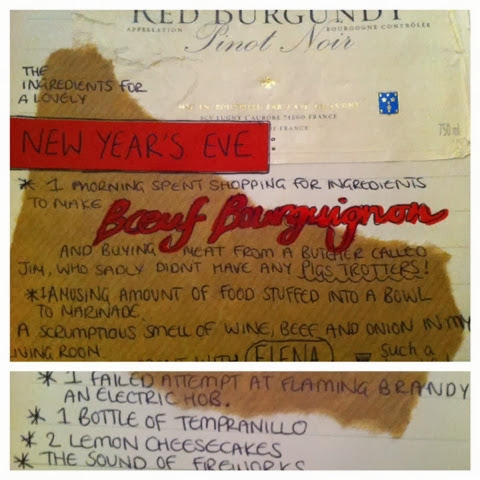 RED BURGUNDY
APPELLATION BOURGOGNE CONTRÔLÉE
Pinot Noir
71260 FRANCE
FRANCE
750 ml
THE
INGREDIENTS FOR
A LOVELY
NEW YEAR'S EVE
* 1 MORNING SPENT SHOPPING FOR INGREDIENTS
TO MAKE Bœuf Bourguignon
AND BUYING MEAT FROM A BUTCHER CALLED
JIM, WHO SADLY DIDNT HAVE ANY PIGS TROTTERS!
*1 AMUSING AMOUNT OF FOOD STUFFED INTO A BOWL
TO MARINADE.
A SCRUMPTIOUS SMELL OF WINE, BEEF AND ONION IN MY
LIVING ROOM
WITH ELENA such a
* 1 FAILED ATTEMPT AT FLAMING BRANDY
AN ELECTRIC HOB.
* 1 BOTTLE OF TEMPRANILLO
* 2 LEMON CHEESECAKES
* THE SOUND OF FIREWORKS